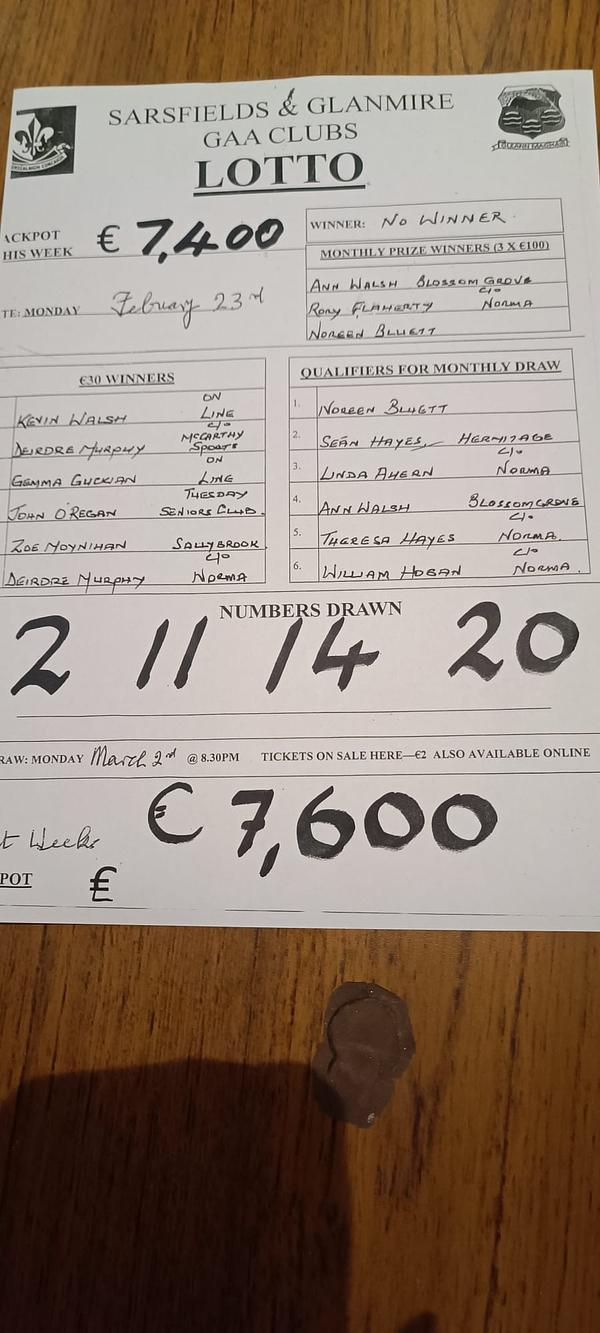 SARSFIELDS & GLANMIRE
GAA CLUBS
LOTTO
GLEANN MAGHAIR
ACKPOT
HIS WEEK € 7,400
WINNER: NO WINNER
MONTHLY PRIZE WINNERS (3 X €100)
ANN WALSH BLOSSOM GROVE
RORY FLAHERTY C/O NORMA
NOREEN BLUETT
TE: MONDAY February 23rd
€30 WINNERS
KEVIN WALSH ON LINE
DEIRDRE MURPHY C/O McCARTHY SPORTS
GEMMA GUCKIAN ON LINE
JOHN O'REGAN TUESDAY SENIORS CLUB.
ZOE MOYNIHAN SALLYBROOK
DEIRDRE MURPHY C/O NORMA
QUALIFIERS FOR MONTHLY DRAW
1. NOREEN BLUETT
2. SEÁN HAYES, HERMITAGE
3. LINDA AHERN C/O NORMA
4. ANN WALSH BLOSSOMGROVE
5. THERESA HAYES C/O NORMA.
6. WILLIAM HOGAN C/O NORMA.
NUMBERS DRAWN
2 11 14 20
RAW: MONDAY March 2nd @ 8.30PM TICKETS ON SALE HERE—€2 ALSO AVAILABLE ONLINE
t Weeks € 7,600
POT €